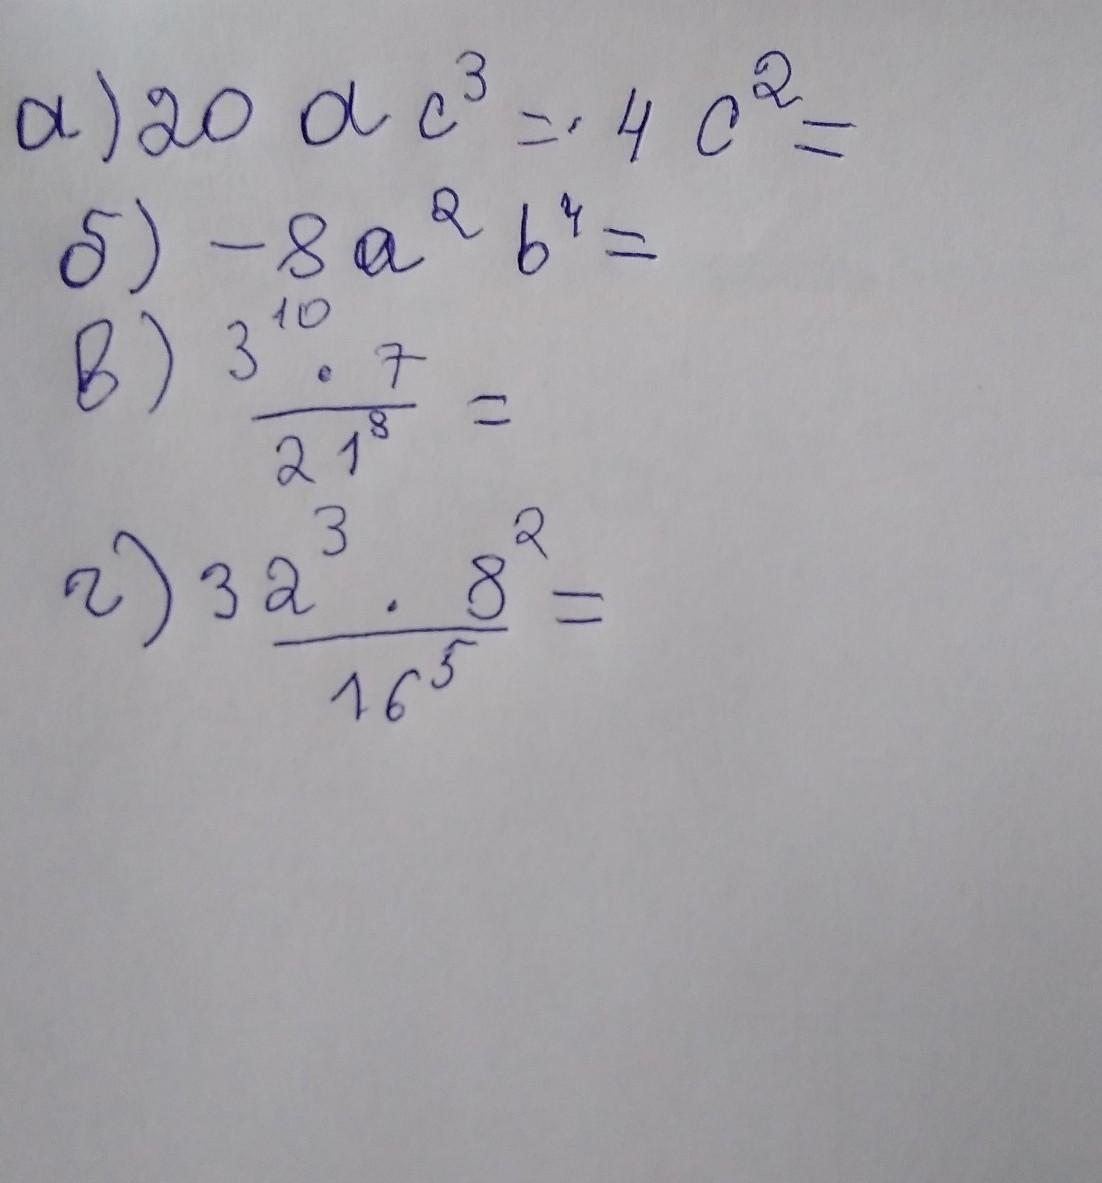 а) 20 a c³ = · 4 c² =
б) -8a² b⁴ =
в) 3¹⁰ · 7 =
21⁸
г) 32³ · 8² =
16⁵